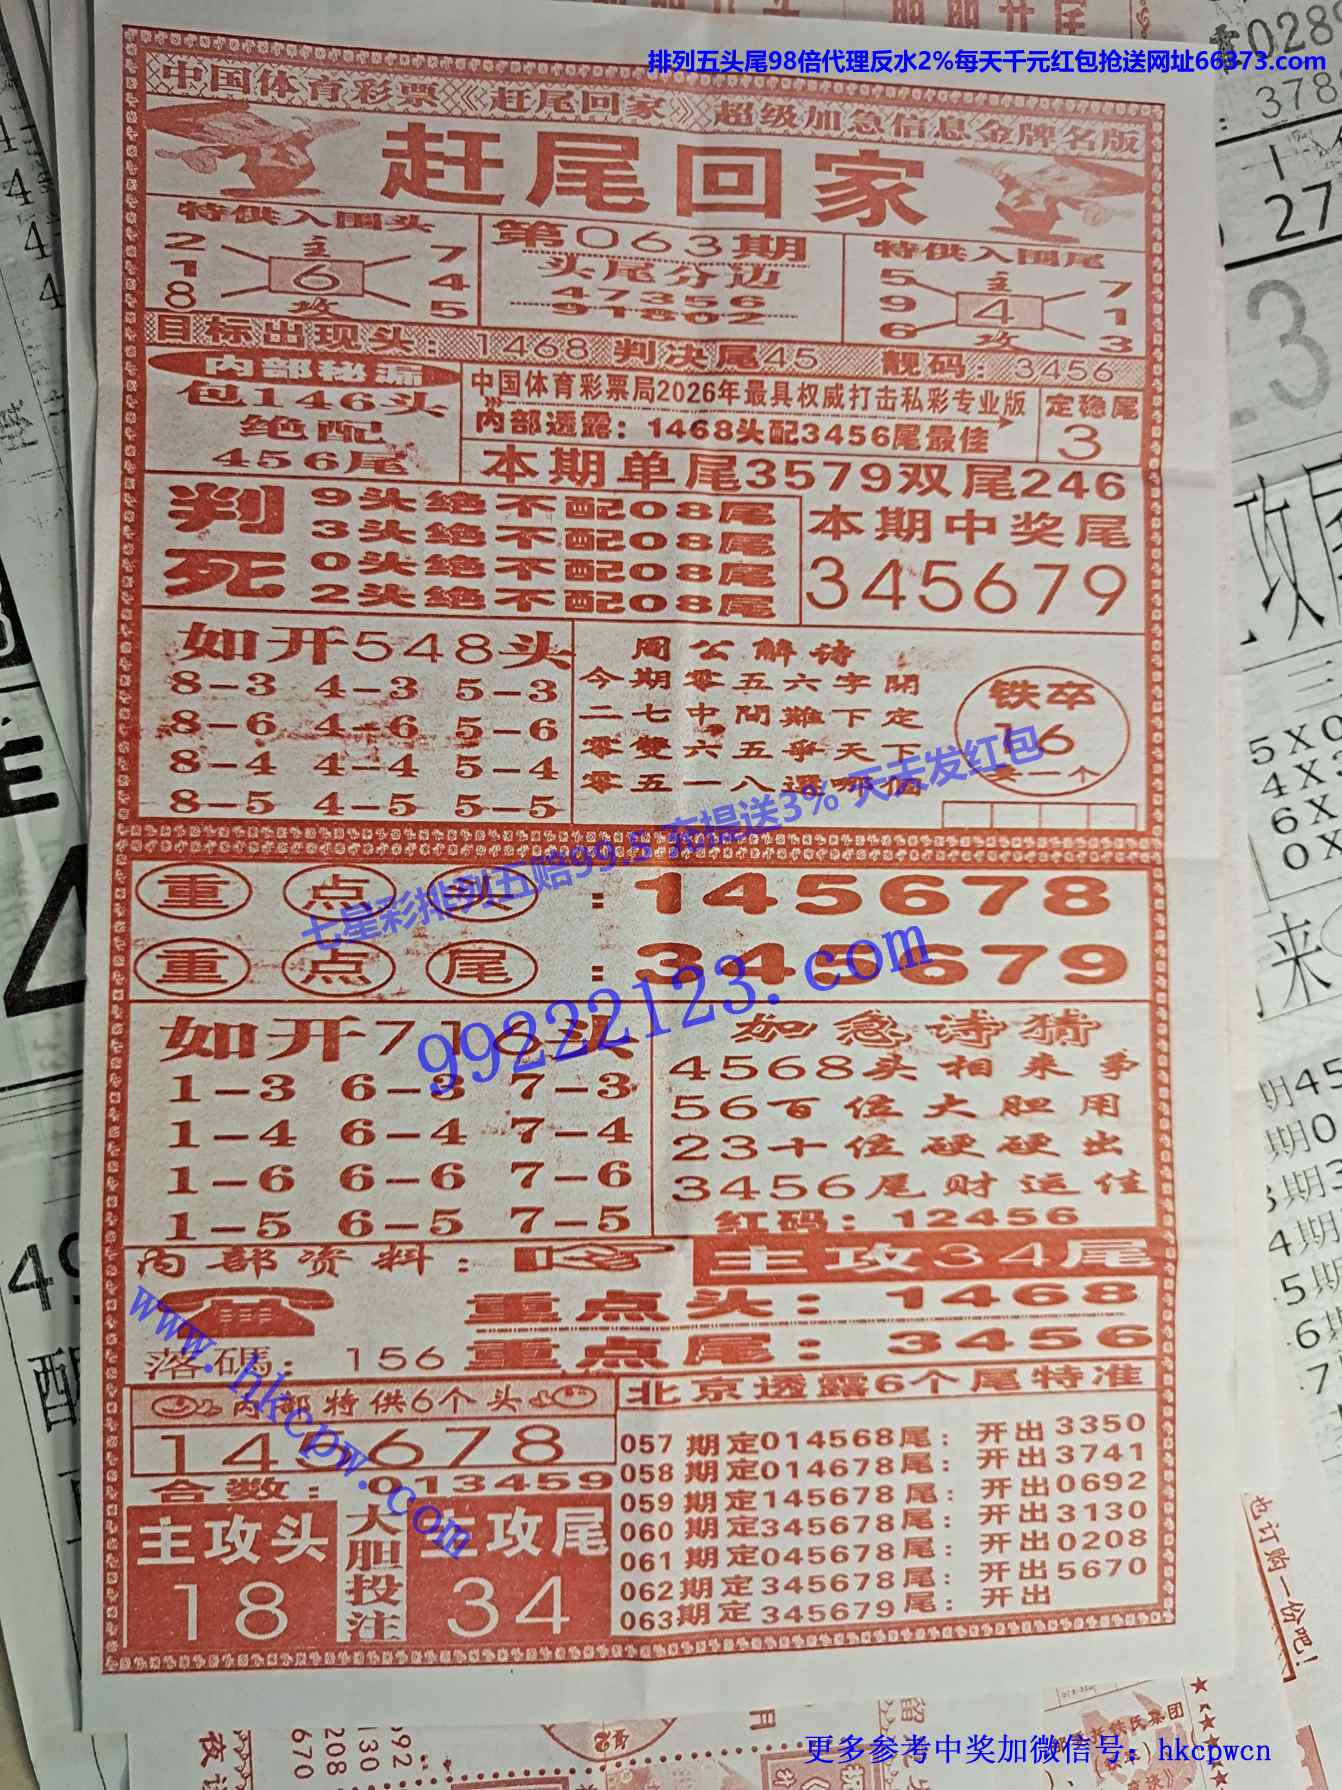 排列五头尾98倍代理反水2%每天千元红包抢送网址66373.com
中国体育彩票《赶尾回家》超级加急信息金牌名版
赶尾回家
特供入围头
2 主 7
1 6 4
8 攻 5
第063期
头尾分边
47356
91802
特供入围尾
5 主 7
9 4 1
6 攻 3
目标出现头：1468 判决尾45 靓码：3456
内部秘漏
包146头
绝配
456尾
中国体育彩票局2026年最具权威打击私彩专业版
内部透露：1468头配3456尾最佳
定稳尾
3
本期单尾3579双尾246
判死
9头绝不配08尾
3头绝不配08尾
0头绝不配08尾
2头绝不配08尾
本期中奖尾
345679
如开548头
8-3 4-3 5-3
8-6 4-6 5-6
8-4 4-4 5-4
8-5 4-5 5-5
周公解诗
今期零五六字開
二七中間難下定
零雙六五爭天下
零五一八選哪個
铁卒
16
卖一个
七星彩排列五赔99.5 充提送3% 天天发红包
重点头：145678
重点尾：345679
99222123.com
如开716头
1-3 6-3 7-3
1-4 6-4 7-4
1-6 6-6 7-6
1-5 6-5 7-5
加急诗猜
4568头相来争
56百位大胆用
23十位硬硬出
3456尾财运佳
红码：12456
内部资料：
主攻34尾
重点头：1468
落碼：156
重点尾：3456
www.hkcpw.com
内部特供6个头
145678
合数：013459
主攻头
18
大胆投注
主攻尾
34
北京透露6个尾特准
057期定014568尾：开出3350
058期定014678尾：开出3741
059期定145678尾：开出0692
060期定345678尾：开出3130
061期定045678尾：开出0208
062期定345678尾：开出5670
063期定345679尾：开出
更多参考中奖加微信号：hkcpwcn